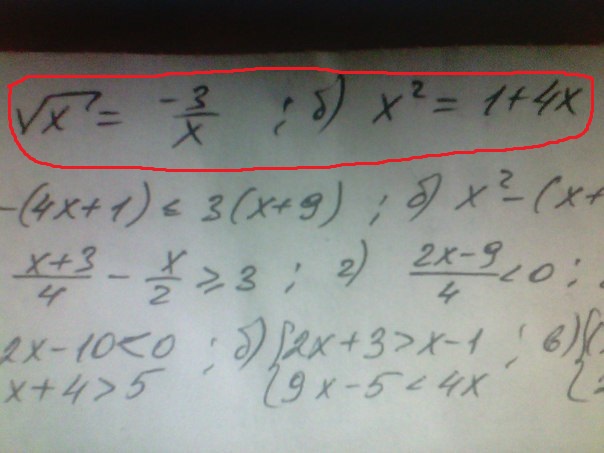 √x = -3/x ; б) x² = 1+4x
-(4x+1) ≤ 3(x+9) ; б) x² - (x+
(x+3)/4 - x/2 ≥ 3 ; г) (2x-9)/4 < 0 ;
2x-10<0 ; б) {2x+3>x-1 ; в) {(
x+4>5 {9x-5<4x {